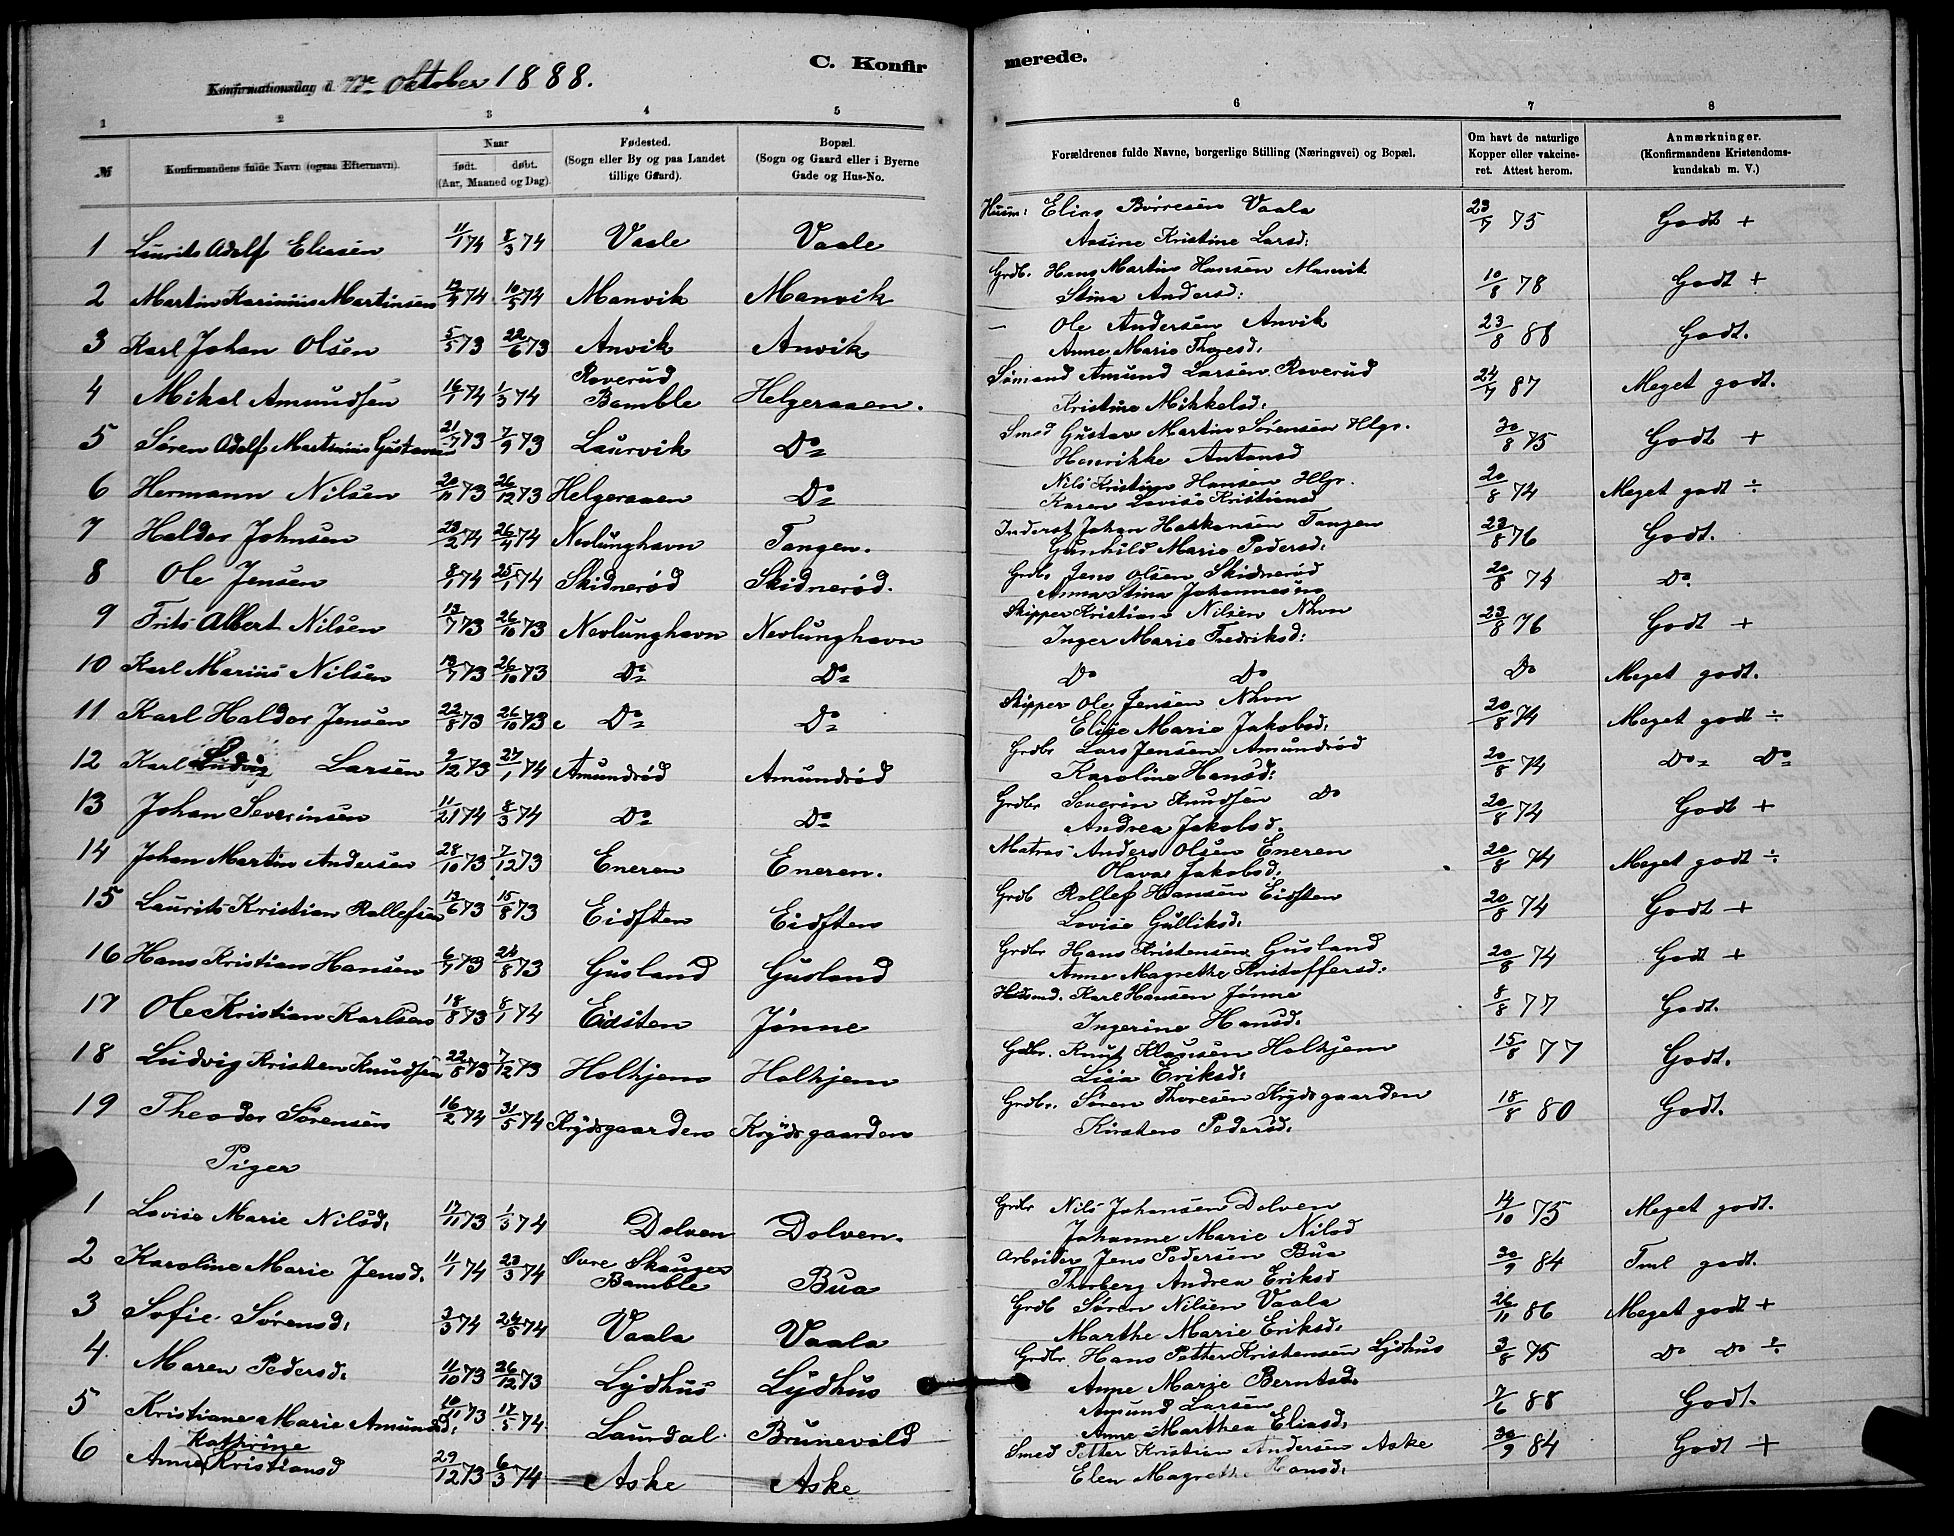 C. Konfir
merede.
Konfirmationsdag d. 7de Oktober 1888.
1 2 3 4 5 6 7 8
№ Konfirmandens fulde Navn (ogsaa Efternavn). Naar født. døbt. (Aar, Maaned og Dag). Fødested. (Sogn eller By og paa Landet tillige Gaard). Bopæl. (Sogn og Gaard eller i Byerne Gade og Hus-No. Forældrenes fulde Navne, borgerlige Stilling (Næringsvei) og Bopæl. Om havt de naturlige Kopper eller vakcineret. Attest herom. Anmærkninger. (Konfirmandens Kristendomskundskab m. V.)
1 Laurits Adolf Eliasen 11/1 74 8/3 74 Vaale Vaale Husm: Elias Børresen Vaala 23/7 75 Godt +
Aasine Kristine Larsd:
2 Martin Karinius Martinsen 10/5 74 Manvik Manvik Grdb. Hans Martin Hansen Manvik 10/8 78 Godt +
Stina Andersd:
3 Karl Johan Olsen 5/5 73 22/6 73 Anvik Anvik — Ole Andersen Anvik 23/8 88 Godt.
Anne Marie Thoresd:
4 Mikal Amundsen 16/1 74 1/3 74 Roverud Bamble Helgeraaen. Sømand Amund Larsen Roverud 24/7 87 Meget godt.
Kristine Mikkelsd:
5 Søren Adolf Martinius Gustavsen 21/7 73 7/9 73 Laurvik Do Smed Gustav Martin Sørensen Hlgr. 30/8 75 Godt +
Henrikke Antonsd
6 Hermann Nilsen 20/11 73 26/12 73 Helgeraaen Do Nils Kristian Hansen Hlgr. 20/8 74 Meget godt ÷
Karen Lovise Kristiansd
7 Haldor Johnsen 23/2 74 26/4 74 Nevlunghavn Tangen. Inderst Johan Haakonsen Tangen 23/8 76 Godt.
Gunhild Marie Pedersd:
8 Ole Jensen 8/1 74 25/1 74 Skidnerød Skidnerød. Grdbr Jens Olsen Skidnerød 20/8 74 Do.
Anna Stina Johannesen
9 Frits Albert Nilsen 13/7 73 26/10 73 Nevlunghavn Nevlunghavn Skipper Kristian Nilsen Nhvn 23/8 76 Godt +
Inger Marie Fredriksd:
10 Karl Marius Nilsen 13/7 73 26/10 73 Do Do Do Do Do Meget godt.
11 Karl Haldor Jensen 22/8 73 26/10 73 Do Do Skipper Ole Jensen Nhvn 20/8 74 Meget godt ÷
Elise Marie Jakobsd:
12 Karl Ludvig Larsen 2/12 73 27/1 74 Amundrød Amundrød Grdbr Lars Jensen Amundrød 20/8 74 Do Do
Karoline Hansd:
13 Johan Severinsen 11/2 74 8/3 74 Do Do Grdbr Severin Knudsen Do 20/8 74 Godt +
Andrea Jakobsd.
14 Johan Martin Andersen 28/10 73 7/12 73 Eneren Eneren. Matros Anders Olsen Eneren 20/8 74 Meget godt ÷
Olava Jakobsd:
15 Laurits Kristian Rollefsen 13/6 73 15/8 73 Eidsten Eidsten Grdb Rollef Hansen Eidsten 20/8 74 Godt +
Lovise Gulliksd:
16 Hans Kristian Hansen 6/7 73 24/8 73 Gusland Gusland Grdbr Hans Kristensen Gusland 20/8 74 Godt +
Anne Magrethe Kristoffersd:
17 Ole Kristian Karlsen 18/8 73 8/1 74 Eidsten Jønne Husmd. Karl Hansen Jønne 8/8 77 Godt.
Ingerine Hansd.
18 Ludvig Kristen Knudsen 22/8 73 7/12 73 Holhjem Holhjem Gdbr. Knut Klausen Holhjem 15/8 77 Godt.
Lisa Eriksd:
19 Theodor Sørensen 16/2 74 31/5 74 Krydsgaarden Krydsgaarden Grdbr. Søren Thoresen Krydsgaarden 18/8 80 Godt.
Kirsten Pedersd:
Piger
1 Lovise Marie Nilsd: 17/11 73 1/3 74 Dolven Dolven. Grdbr Nils Johansen Dolven 14/10 75 Meget godt.
Johanne Marie Nilsd
2 Karoline Marie Jensd. 11/1 74 23/3 74 Øvre Skauger Bamble Bua Arbeider Jens Pedersen Bua 30/9 84 Tml godt.
Thorberg Andrea Eriksd
3 Sofie Sørensd: 3/3 74 24/5 74 Vaala Vaala Grdb Søren Nilsen Vaala 26/11 86 Meget godt +
Marthe Marie Eriksd:
4 Maren Pedersd. 11/10 73 26/12 73 Lydhus Lydhus Grdbr. Hans Petter Kristensen Lydhus 3/8 75 Do Do ÷
Anne Marie Berntsd.
5 Kristiane Marie Amundsd: 10/11 73 17/5 74 Laurdal Brunevald Amund Larsen 7/6 88 Godt.
Anne Marthea Eliasd:
6 Anne Kathrine Kristiansd 29/12 73 6/3 74 Aske Aske Smed Petter Kristian Andersen Aske 30/9 84 Godt +
Elen Magrethe Hansd: